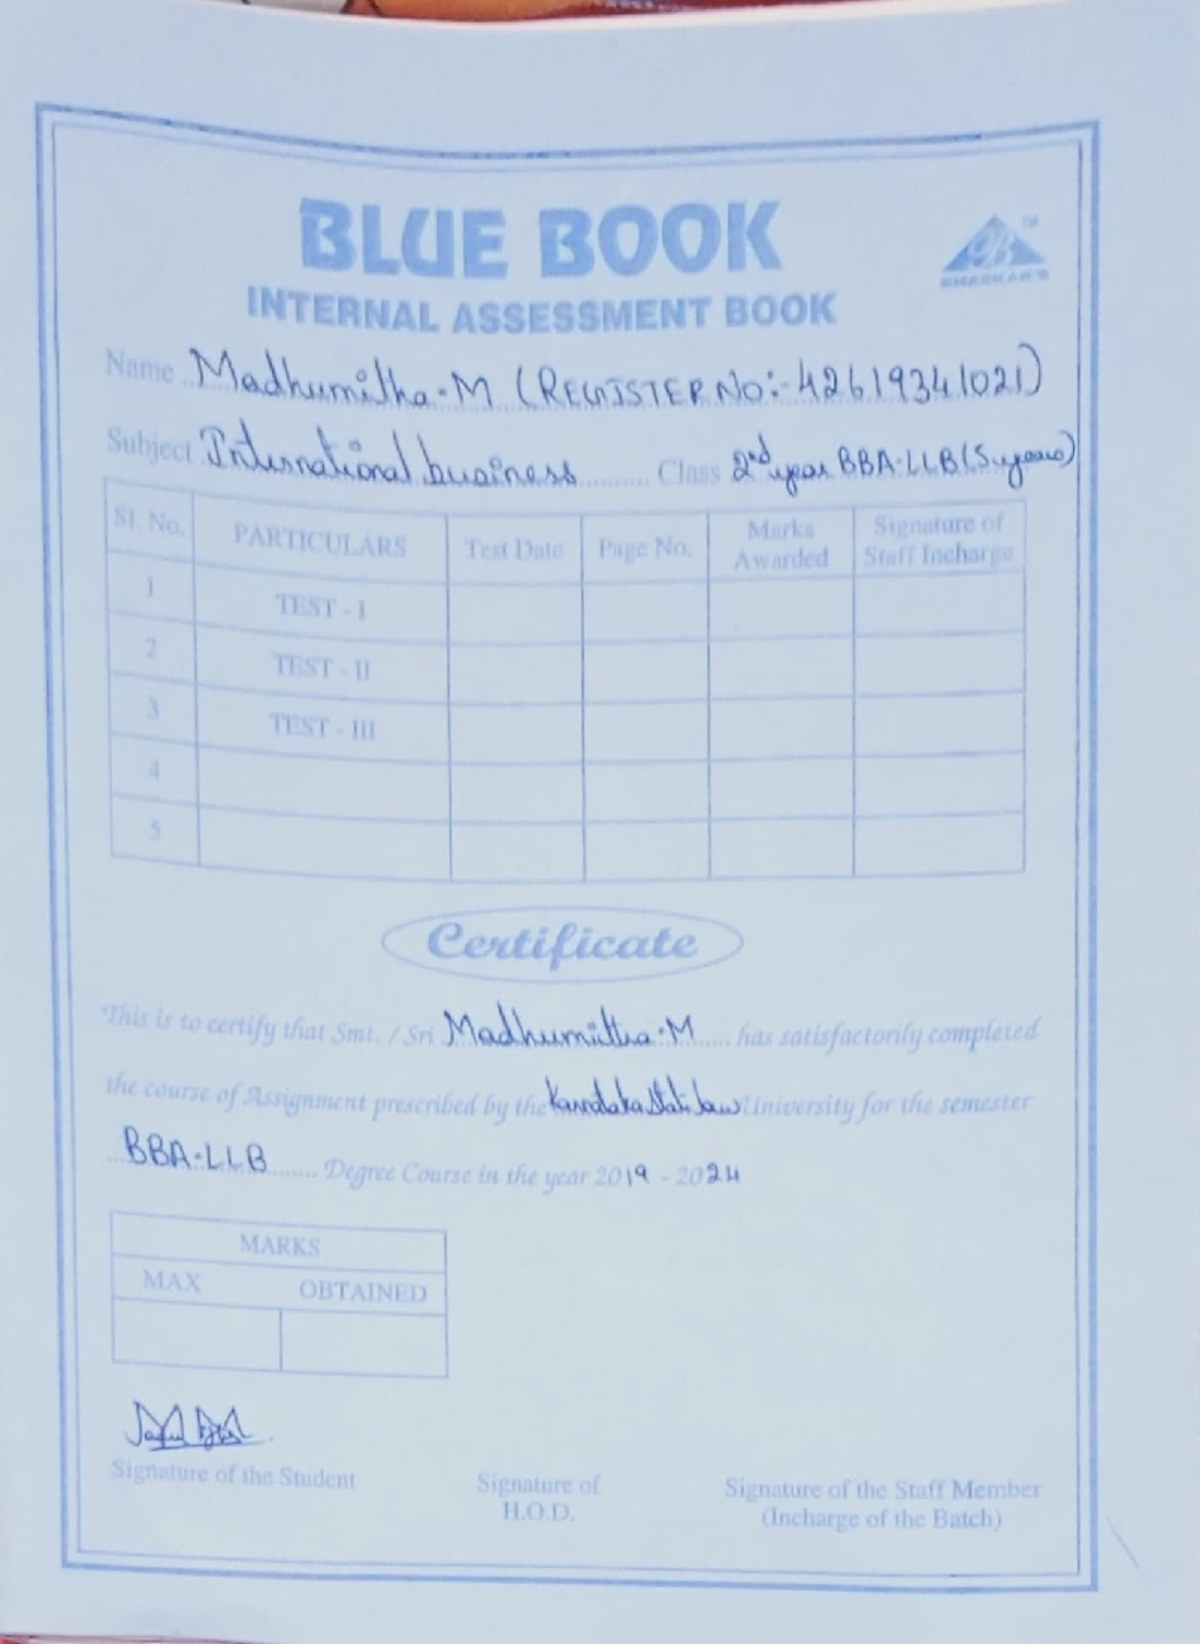 BLUE BOOK
TM
BHASKAR'S
INTERNAL ASSESSMENT BOOK
Name Madhumitha.M (REGISTER NO:- 42619341021)
Subject International business Class 2nd year BBA.LLB (5 years)
Sl. No. PARTICULARS Test Date Page No. Marks Awarded Signature of Staff Incharge
1 TEST - I
2 TEST - II
3 TEST - III
4
5
Certificate
This is to certify that Smt. / Sri Madhumitha.M has satisfactorily completed
the course of Assignment prescribed by the Karnataka State Law University for the semester
BBA.LLB Degree Course in the year 2019 - 2024
MARKS
MAX OBTAINED
Signature of the Student
Signature of
H.O.D.
Signature of the Staff Member
(Incharge of the Batch)